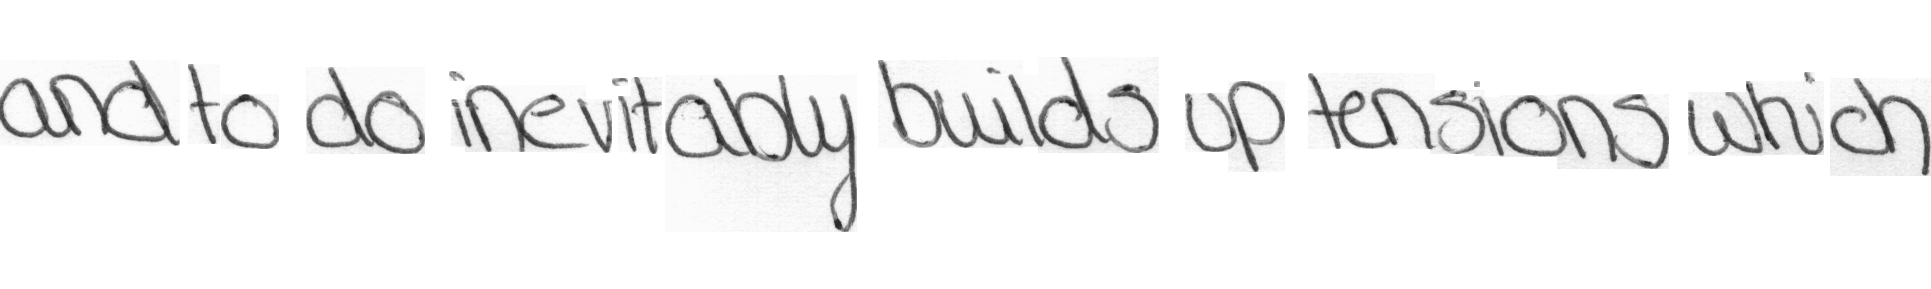 and to do inevitably builds up tensions which